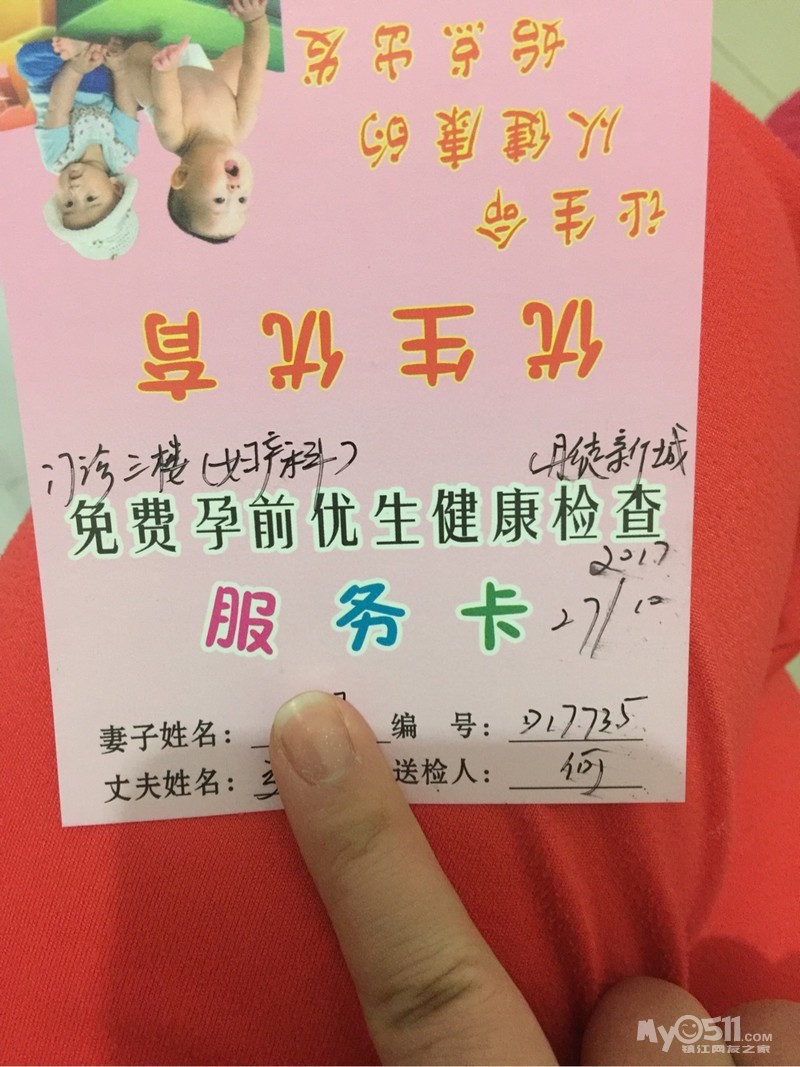 让生命
从健康的
始点出发
优生优育
门诊三楼(妇产科) 丹徒新城
免费孕前优生健康检查
2017
服务卡 27/10
妻子姓名: 编 号: D17735
丈夫姓名: 送检人: 何
My0511.COM
镇江网友之家